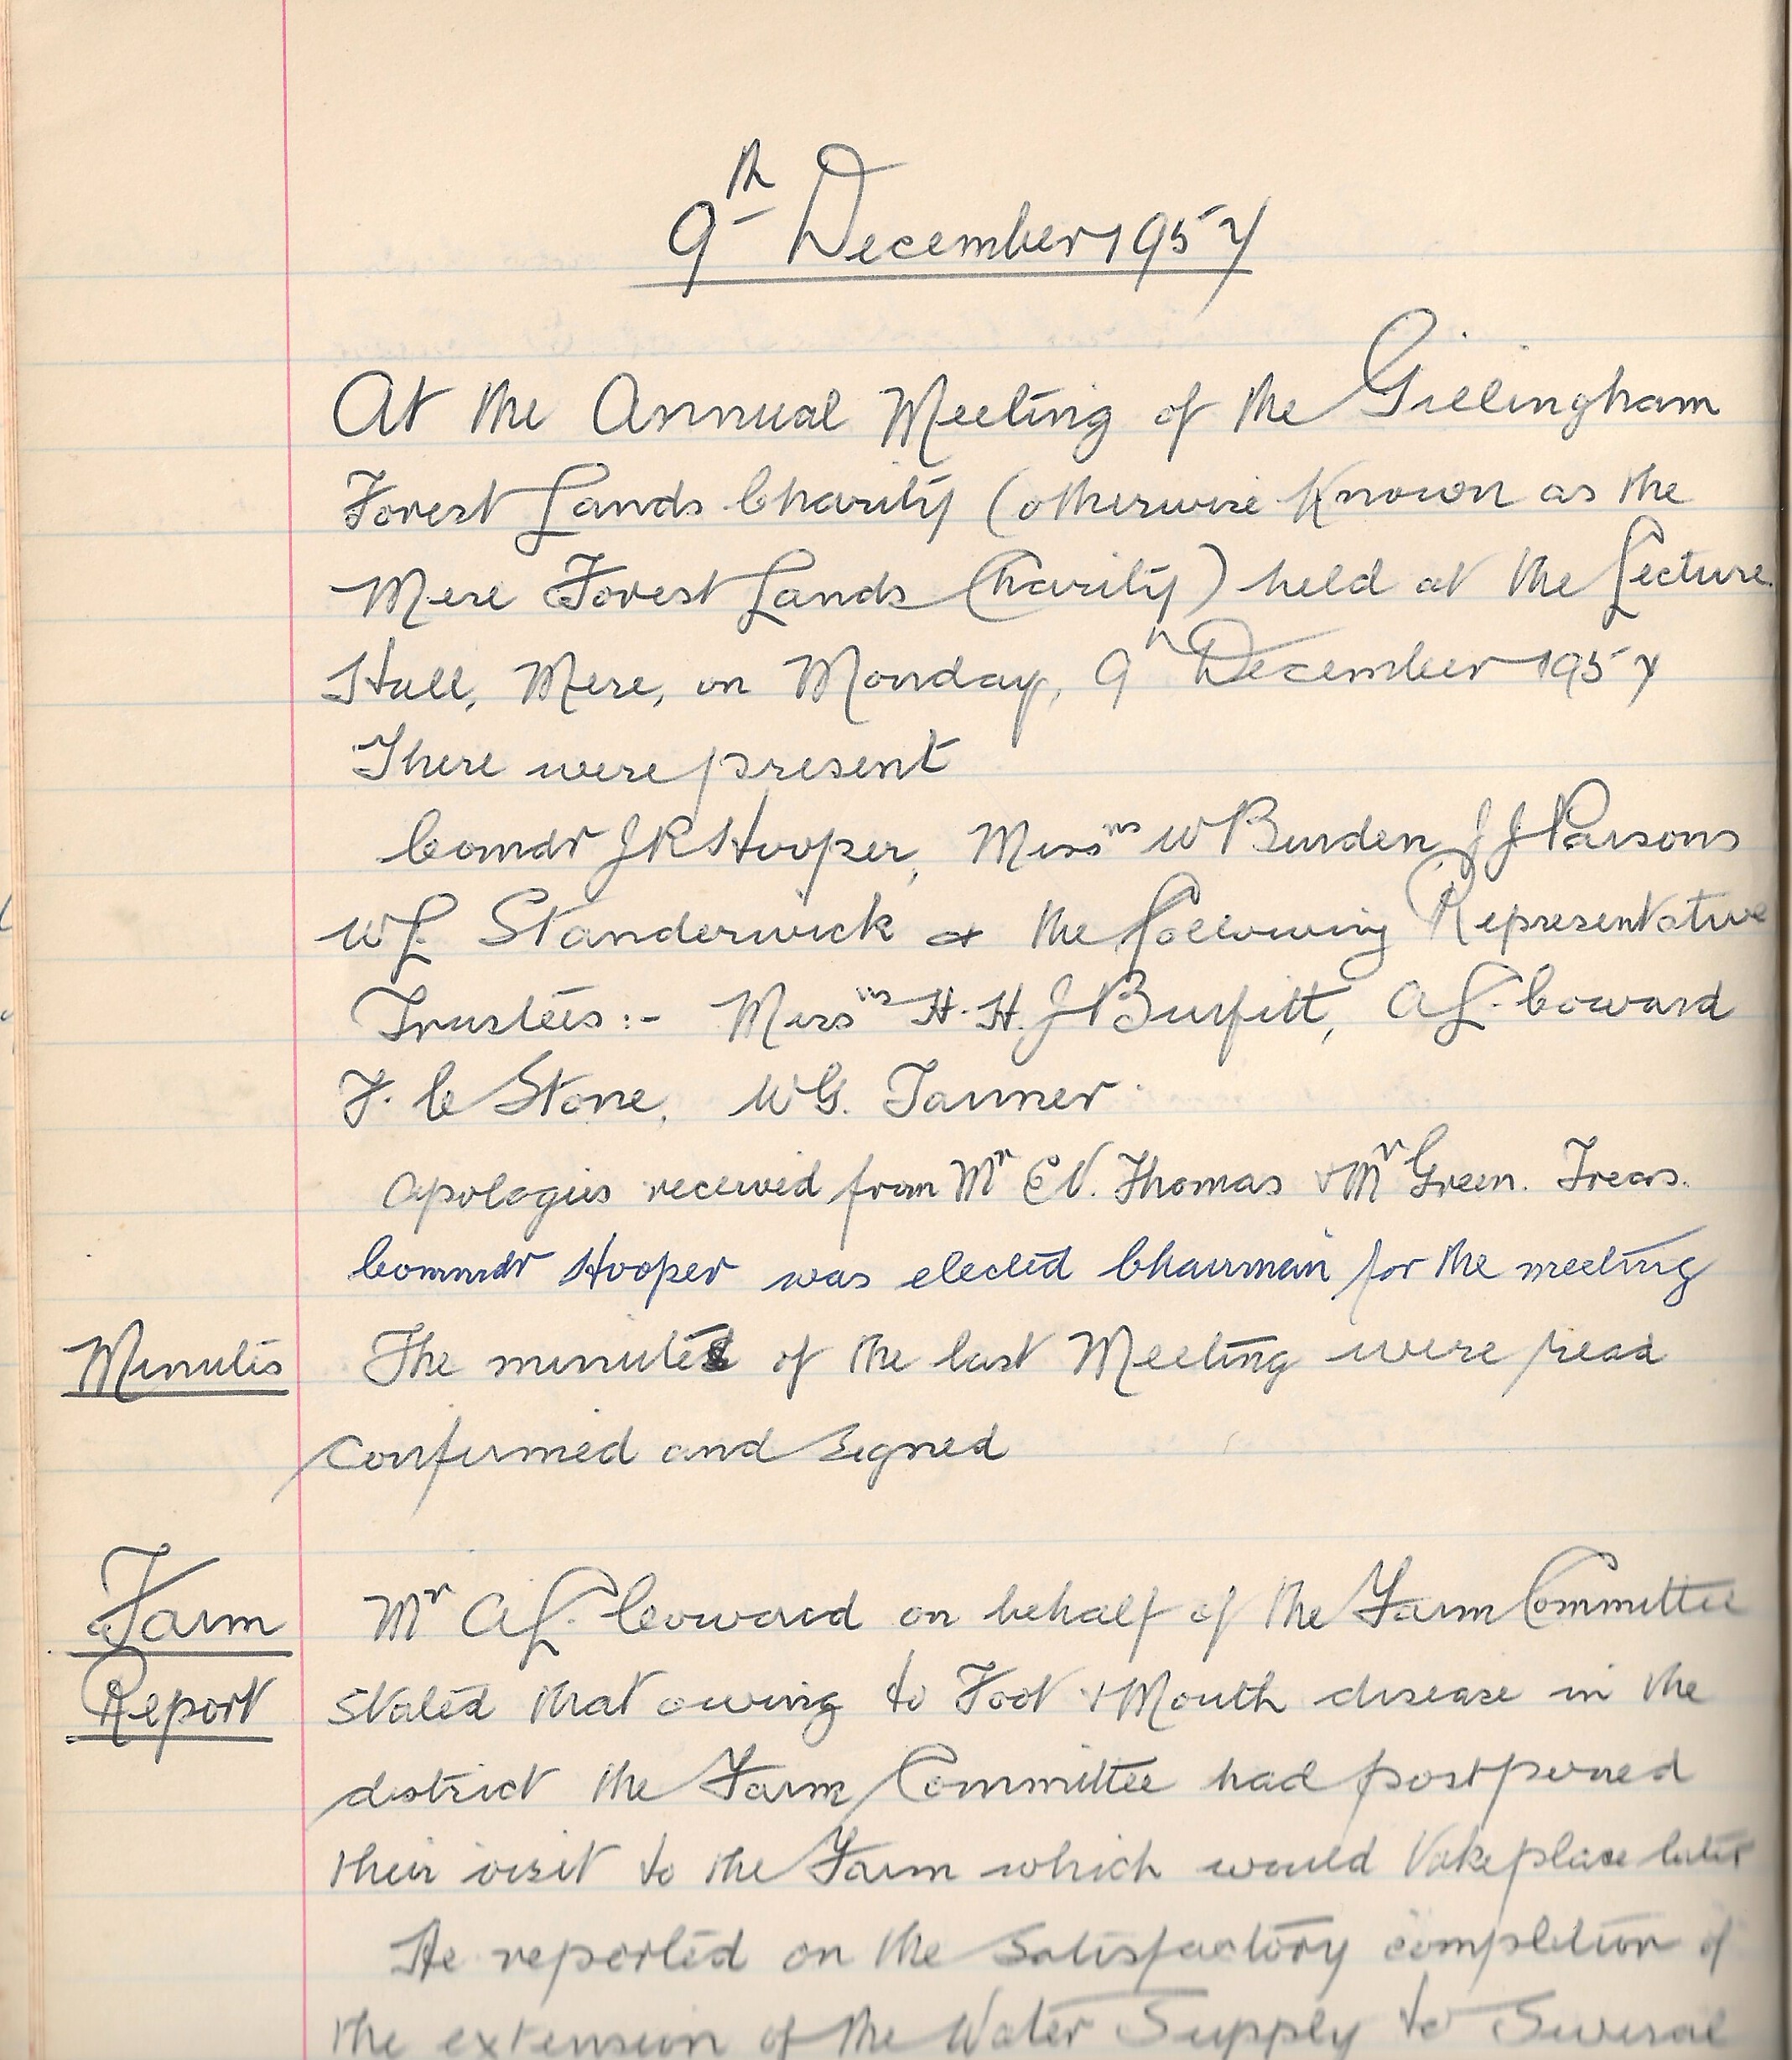 9th December 1957
At the Annual Meeting of the Gillingham
Forest Lands Charity (otherwise Known as the
Mere Forest Lands Charity) held at the Lecture
Hall, Mere, on Monday, 9th December 1957
There were present
Comdr J R Hooper, Messrs W Burden, J J Parsons
W L Standerwick & the following Representative
Trustees:- Messrs H. H. J Burfitt, A L. Coward
F. C Stone, W G. Tanner.
Apologies received from Mr E V. Thomas & Mr Green. Treas.
Commdr Hooper was elected Chairman for the meeting
Minutes
The minutes of the last Meeting were read
confirmed and signed
Farm
Report
Mr A L. Coward on behalf of the Farm Committee
stated that owing to Foot & Mouth disease in the
district the Farm Committee had postponed
their visit to the Farm which would take place later
He reported on the satisfactory completion of
the extension of the Water Supply to Several